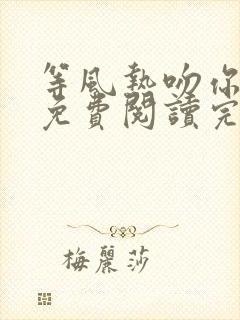 等風熱吻你
免費閱讀完
梅麗莎